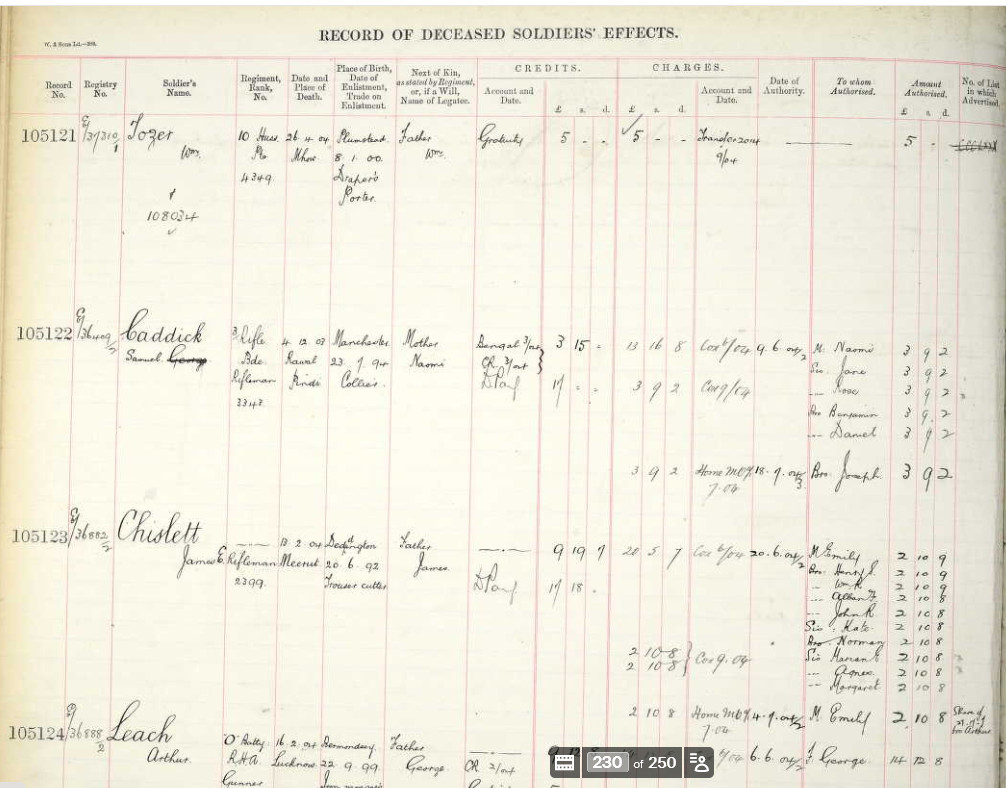 W. & Sons Ld.
RECORD OF DECEASED SOLDIERS' EFFECTS.
Record No. Registry No. Soldier's Name. Regiment, Rank, No. Date and Place of Death. Place of Birth, Date of Enlistment, Trade on Enlistment. Next of Kin, as stated by Regiment, or, if a Will, Name of Legatee. CREDITS. Account and Date. £ s. d. CHARGES. £ s. d. Account and Date. Date of Authority. To whom Authorised. Amount Authorised. £ s. d. No. of List in which Advertised.
105121 E/37310/1 Tozer 10 Huss 26.4.04 Plumstead Father Gratuity 5 - - 5 - - Transfer 9/04 5 -
Wm. Pte Mhow 8.1.00. Wm.
4349. Draper's
Porter.
108034
105122 E/36409/2 Caddick 3 Rifle 4.12.03 Manchester Mother Bengal 3/04 3 15 - 13 16 8 Cox 6/04 9.6.04/2 M. Naomi 3 9 2
Samuel George Bde Rawal 23.7.94 Naomi OR 3/04 Sis. Jane 3 9 2
Rifleman Pindi Collier. 17 - - 3 9 2 Cox 9/04 Rose 3 9 2
3343. Bro Benjamin 3 9 2
Daniel 3 9 2
3 9 2 Home 7.04 18.7.04/3 Bro. Joseph. 3 9 2
105123 E/36882/2 Chislett 13.2.04 Father 9 19 7 20 5 7 Cox 6/04 20.6.04/2 M Emily 2 10 9
James E. Rifleman Meerut 20.6.92 James. Bro. Henry J. 2 10 9
2399. Trouser cutter 17 18 - Wm R. 2 10 9
Albert F. 2 10 8
John R 2 10 8
Sis. Kate 2 10 8
Bro. Norman 2 10 8
2 10 8 Cox 9.04 Sis Marian E 2 10 8
2 10 8 Agnes 2 10 8
Margaret 2 10 8
2 10 8 Home 7.04 4.7.04/2 M. Emily 2 10 8 Share of Arthur
105124 E/36888/2 Leach "O" Batty 16.2.04 Bermondsey Father
Arthur. R.H.A. Lucknow 22.9.99. George. OR 2/04 6/04 6.6.04/2 F. George 14 12 8
Gunner
230 of 250